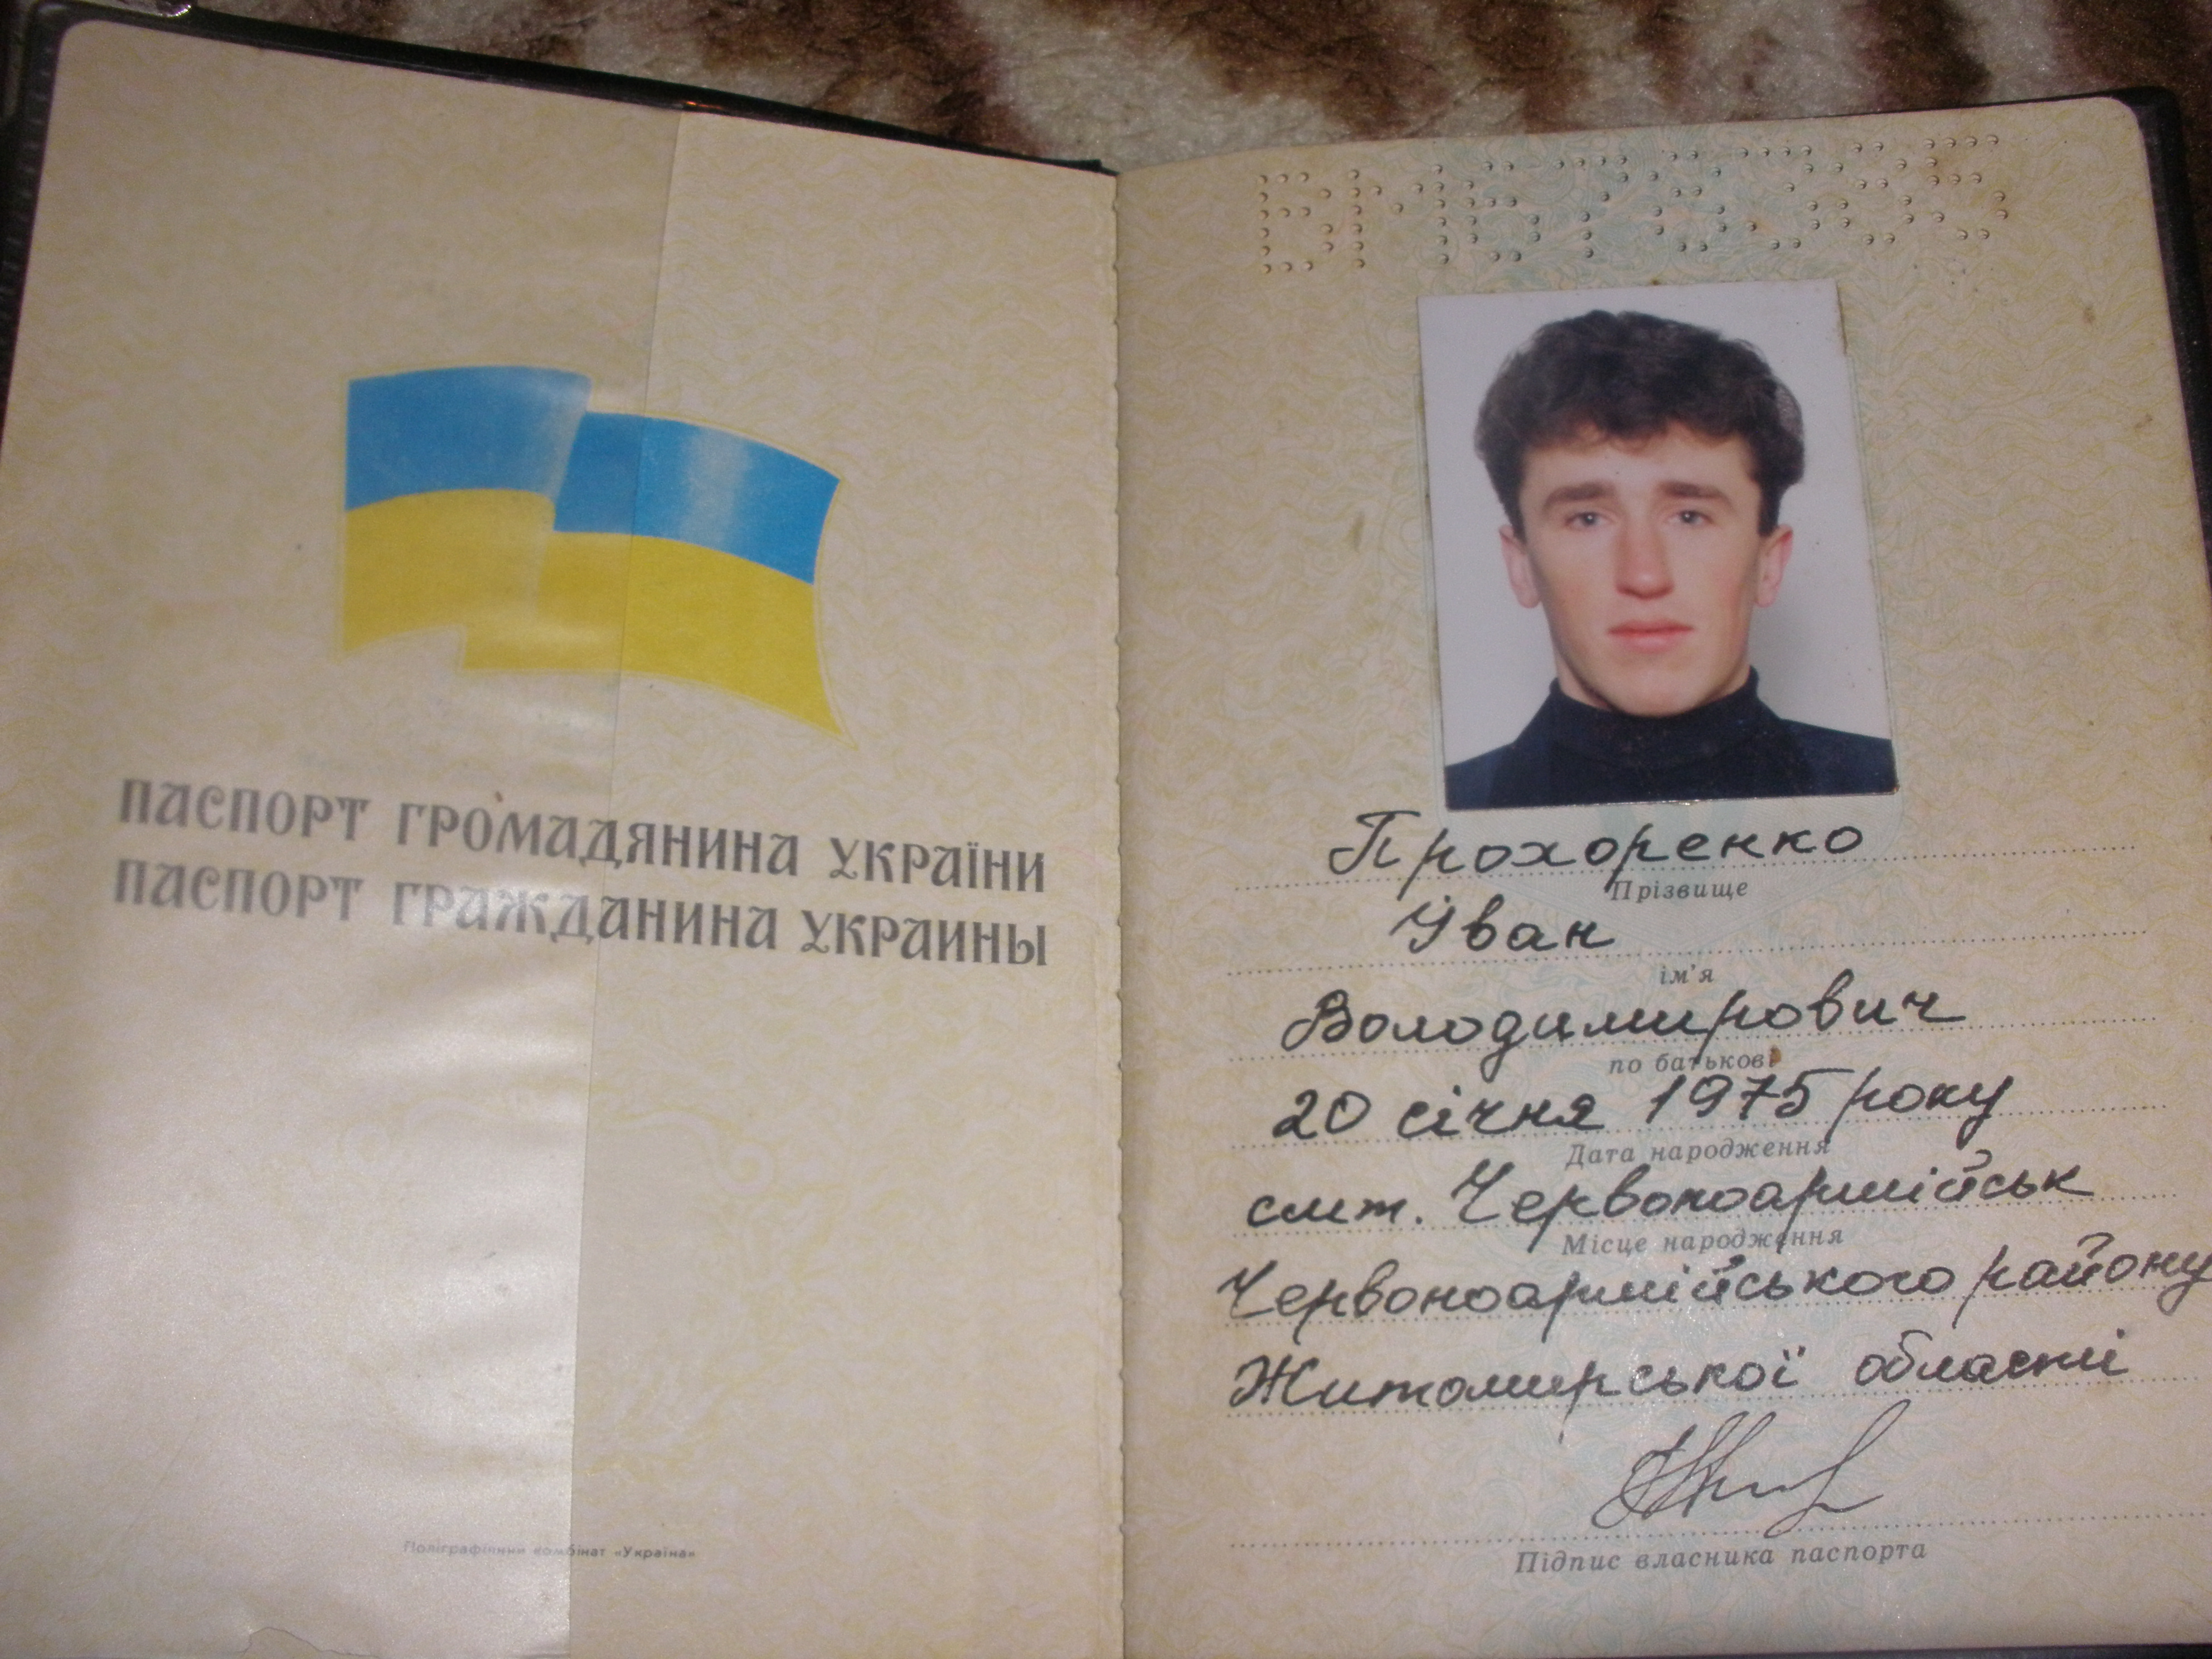 ПАСПОРТ ГРОМАДЯНИНА УКРАЇНИ
ПАСПОРТ ГРАЖДАНИНА УКРАИНЫ
Поліграфічний комбінат «Україна»
Прохоренко
Прізвище
Іван
ім'я
Володимирович
по батькові
20 січня 1975 року
Дата народження
смт. Червоноармійськ
Місце народження
Червоноармійського району
Житомирської області
Підпис власника паспорта